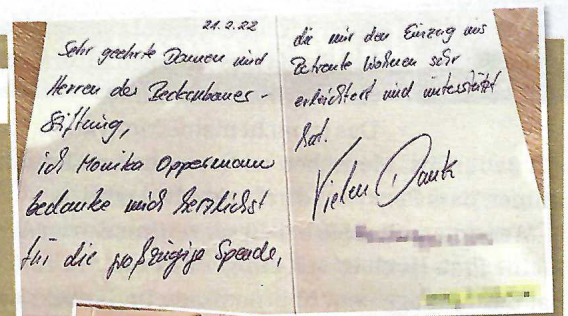 21.2.22
Sehr geehrte Damen und
Herren der Beckenbauer-
Stiftung,
ich Monika Oppermann
bedanke mich herzlichst
für die großzügige Spende,
die mir den Einzug ins
Betreute Wohnen sehr
erleichtert und unterstützt
hat.
Vielen Dank